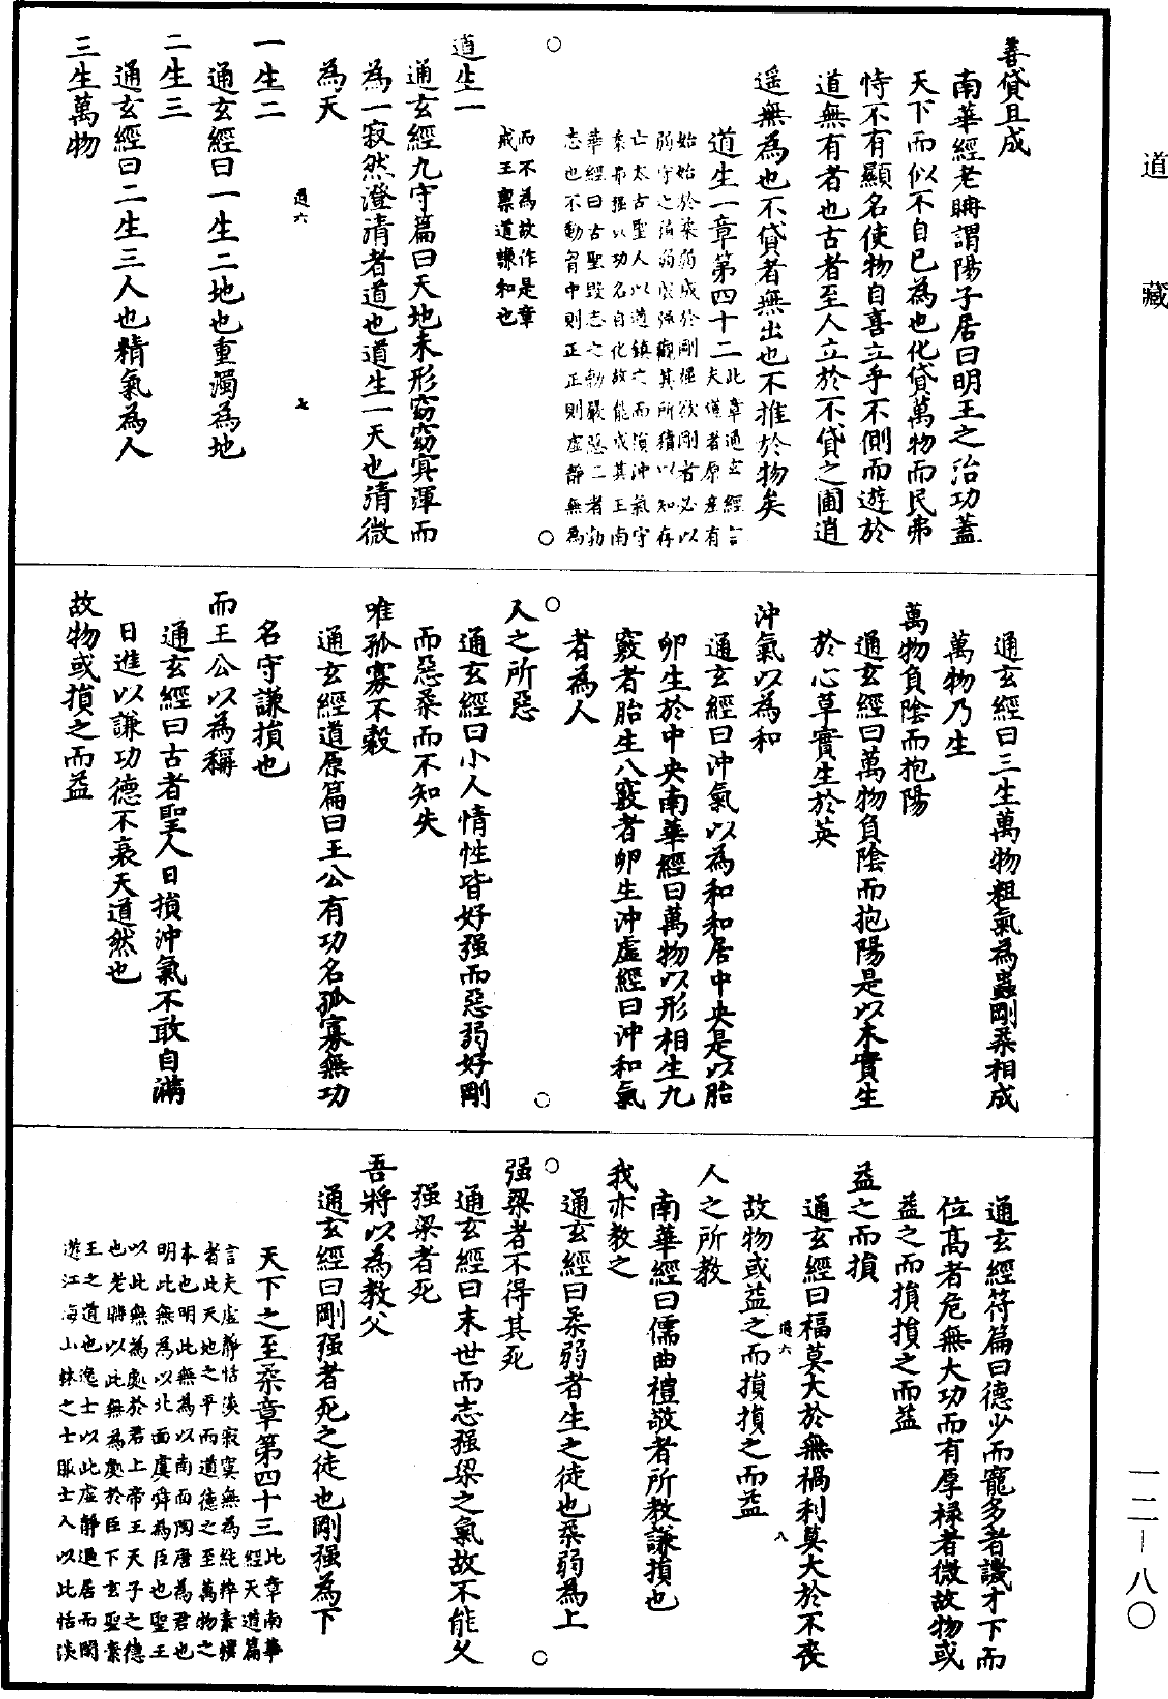 道藏
善貸且成
南華經老聃謂陽子居曰明王之治功蓋
天下而似不自己為也化貸萬物而民弗
恃不有顯名使物自喜立乎不側而遊於
道無有者也古者至人立於不貸之圃逍
遥無為也不貸者無出也不推於物矣
道生一章第四十二此章通玄經言
夫道者原產有
始始於柔弱成於剛極欲剛者必以
弱守之積弱成強觀其所積以知存
亡太古聖人以道鎮之而演沖氣守
柔弗强以功名自化故能成其王南
華經曰古聖毀志之勃嚴惡二者勃
志也不動胷中則正正則虛靜無為
而不為故作是章
戒王禀道謙和也
道生一
通玄經九守篇曰天地未形窈窈冥渾而
為一寂然澄清者道也道生一天也清微
為天
道六 七
一生二
通玄經曰一生二地也重濁為地
二生三
通玄經曰二生三人也精氣為人
三生萬物
通玄經曰三生萬物粗氣為蟲剛柔相成
萬物乃生
萬物負陰而抱陽
通玄經曰萬物負陰而抱陽是以木實生
於心草實生於英
沖氣以為和
通玄經曰沖氣以為和和居中央是以胎
卵生於中央南華經曰萬物以形相生九
竅者胎生八竅者卵生沖虛經曰沖和氣
者為人
人之所惡
通玄經曰小人情性皆好强而惡弱好剛
而惡柔而不知失
唯孤寡不穀
通玄經道原篇曰王公有功名孤寡無功
名守謙損也
而王公以為稱
通玄經曰古者聖人日損沖氣不敢自滿
日進以謙功德不衰天道然也
故物或損之而益
通玄經符篇曰德少而寵多者譏才下而
位髙者危無大功而有厚祿者微故物或
益之而損損之而益
益之而損
通玄經曰福莫大於無禍利莫大於不喪
道六 八
故物或益之而損損之而益
人之所教
南華經曰儒曲禮敬者所教謙損也
我亦教之
通玄經曰柔弱者生之徒也柔弱為上
强梁者不得其死
通玄經曰末世而志强梁之氣故不能久
强梁者死
吾將以為教父
通玄經曰剛强者死之徒也剛强為下
天下之至柔章第四十三此章南華
經天道篇
言夫虛靜恬淡寂寞無為純粹素樸
者此天地之平而道德之至萬物之
本也明此無為以南面陶唐為君也
明此無為以北面虞舜為臣也聖王
以此無為處於君上帝王天子之德
也老聃以此無為處於臣下玄聖素
王之道也逸士以此虛靜退居而閑
遊江海山林之士服士入以此恬淡
一二—八〇